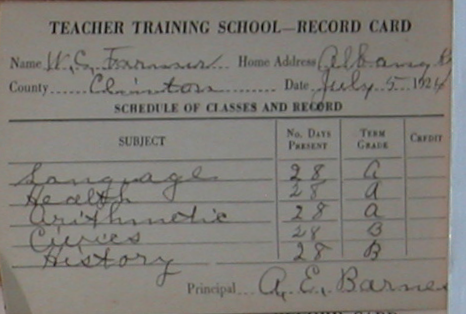 TEACHER TRAINING SCHOOL—RECORD CARD
Name W. C. Farmer Home Address Albany
County Clinton Date July 5 1924
SCHEDULE OF CLASSES AND RECORD
SUBJECT No. Days Present Term Grade Credit
Language 28 A
Health 28 A
Arithmetic 28 A
Civics 28 B
History 28 B
Principal A. E. Barnes